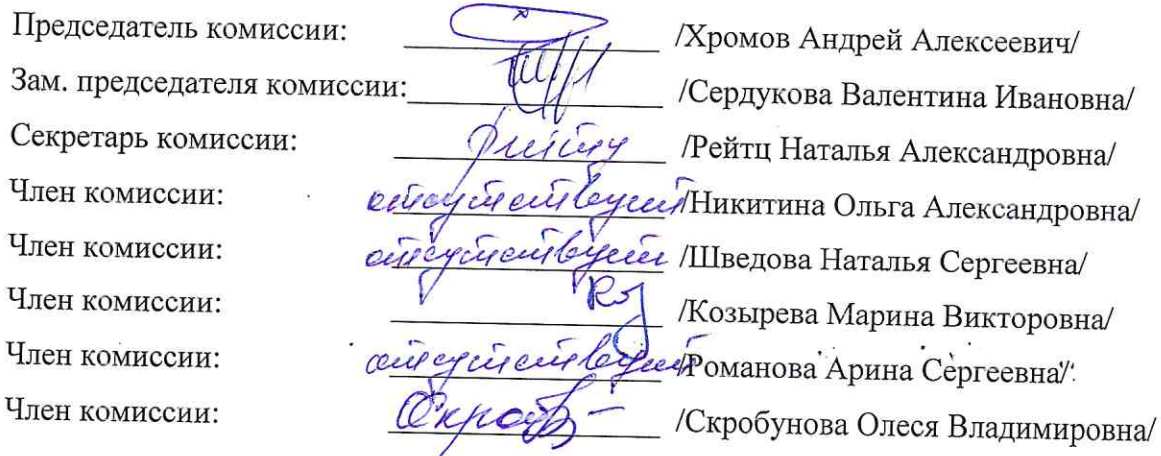 Председатель комиссии: /Хромов Андрей Алексеевич/
Зам. председателя комиссии: /Сердукова Валентина Ивановна/
Секретарь комиссии: /Рейтц Наталья Александровна/
Член комиссии: отсутствует /Никитина Ольга Александровна/
Член комиссии: отсутствует /Шведова Наталья Сергеевна/
Член комиссии: /Козырева Марина Викторовна/
Член комиссии: отсутствует /Романова Арина Сергеевна/
Член комиссии: /Скробунова Олеся Владимировна/